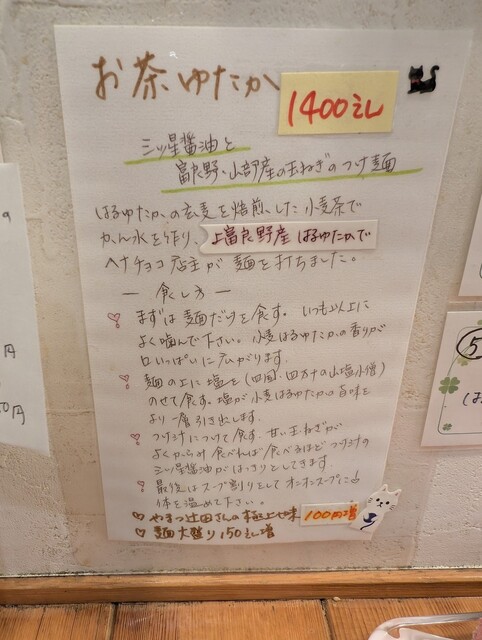 お茶ゆたか
1400ミル
三ツ星醤油と
富良野・山部産の玉ねぎのつけ麺
はるゆたかの玄麦を焙煎した小麦茶で
かん水を作り、上富良野産はるゆたかで
ヘナチョコ店主が麺を打ちました。
― 食し方 ―
まずは麺だけを食す。いつも以上に
よく噛んで下さい。小麦はるゆたかの香りが
口いっぱいに広がります.
麺の上に塩を(四国・四万十の山塩小僧)
のせて食す。塩が小麦はるゆたかの旨味を
より一層引き出します.
つけ汁につけて食す.甘い玉ねぎが
よくからみ食べれば食べるほどつけ汁の
三ツ星醤油がはっきりとしてきます
最後はスープ割りをしてオニオンスープに
体を温めて下さい。
♡ やまつ辻田さんの極上七味 100円増
♡ 麺大盛り150ミル増
円
0円
5